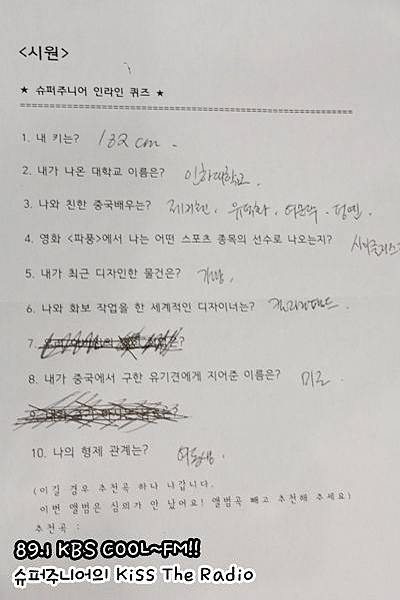 <시원>
★ 슈퍼주니어 인라인 퀴즈 ★
1. 내 키는? 182 cm.
2. 내가 나온 대학교 이름은? 인하대학교.
3. 나와 친한 중국배우는? 유덕화, 여문락,
4. 영화 <파풍>에서 나는 어떤 스포츠 종목의 선수로 나오는지?
5. 내가 최근 디자인한 물건은? 가방.
6. 나와 화보 작업을 한 세계적인 디자이너는?
7.
8. 내가 중국에서 구한 유기견에게 지어준 이름은?
9.
10. 나의 형제 관계는? 여동생.
(이길 경우 추천곡 하나 나갑니다.
이번 앨범은 심의가 안 났어요! 앨범곡 빼고 추천해 주세요)
추천곡 :
89.1 KBS COOL~FM!!
슈퍼주니어의 Kiss The Radio